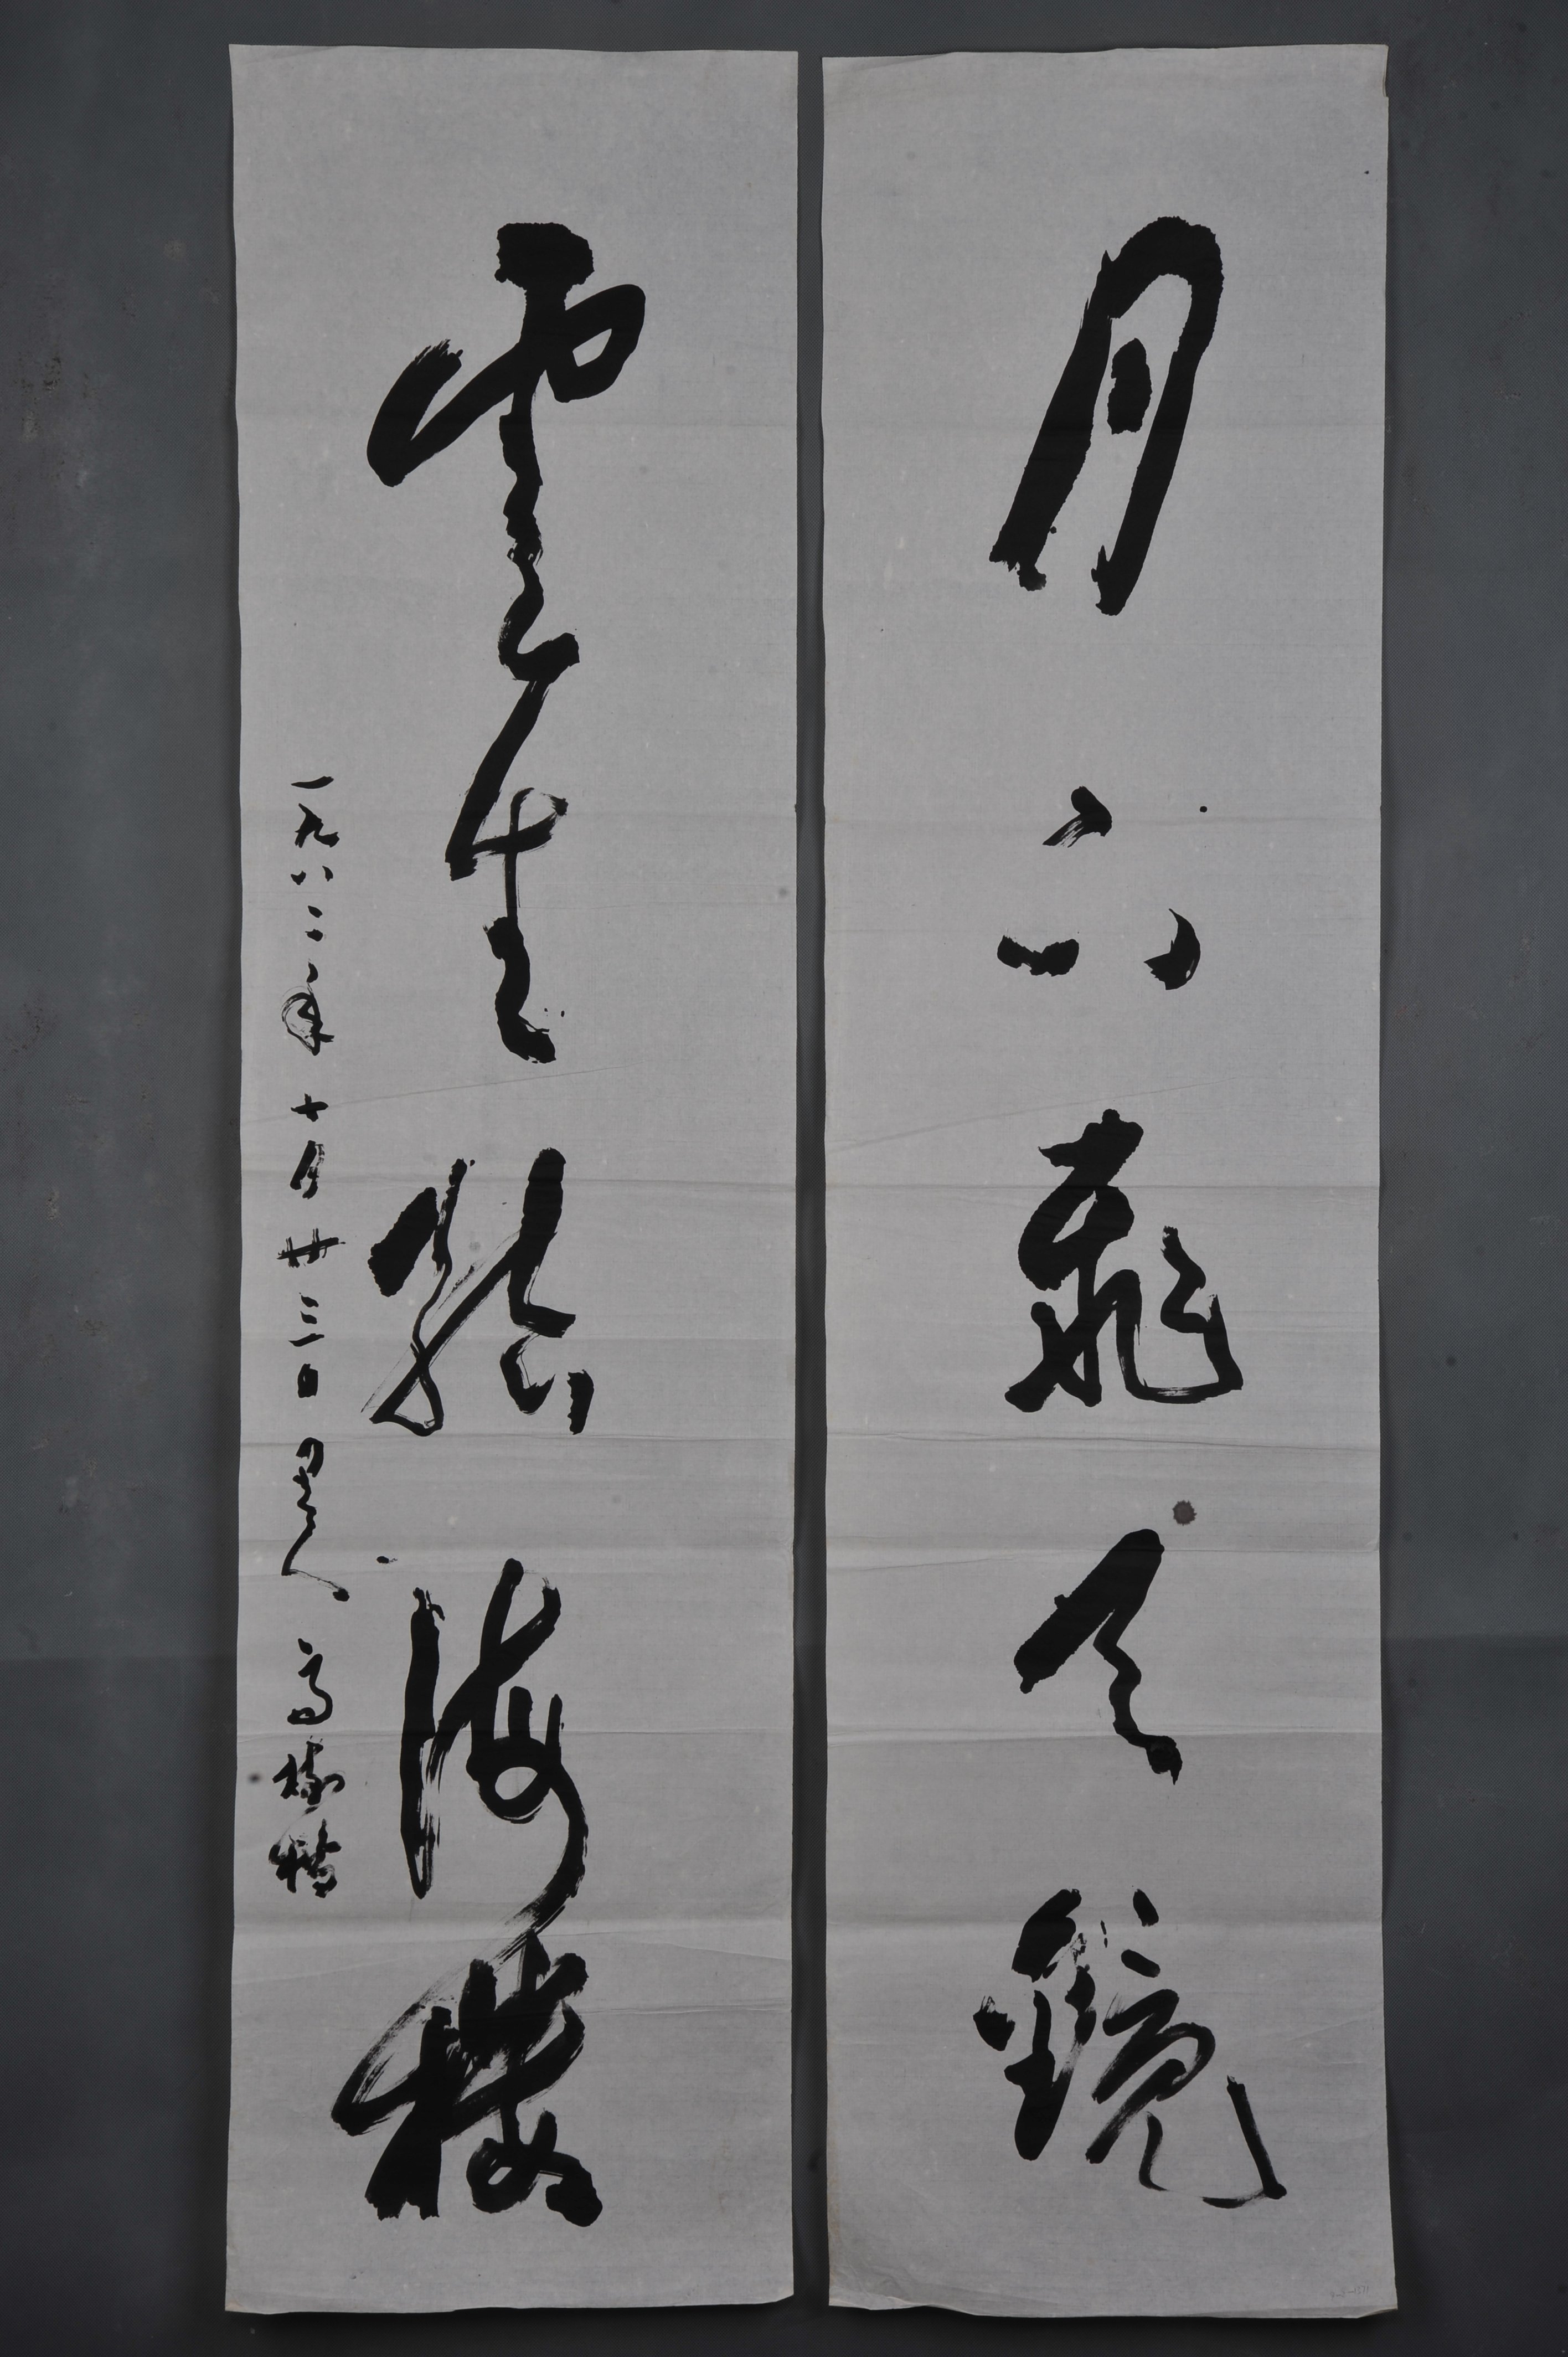 月下飛天鏡
雲生結海樓
一九八二年十月廿三日 高